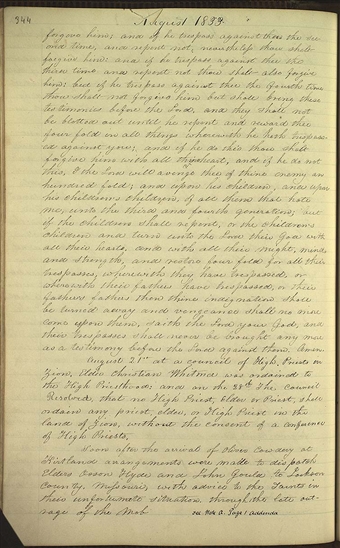 344
August 1833
forgive him; and if he trespass against thee the se-
cond time, and repent not, nevertheless thou shalt
forgive him: and if he trespass against thee the
third time and repent not thou shalt also forgive
him: but if he trespass against thee the fourth time
thou shalt not forgive him but shall bring these
testimonies before the Lord, and they shall not
be blotted out until he repent and reward thee
four fold in all things wherewith he hath trespass-
ed against you; and if he do this thou shalt
forgive him with all thine heart, and if he do not
this, I the Lord will avenge thee of thine enemy an
hundred fold; and upon his children, and upon
his children's children, of all them that hate
me, unto the third and fourth generation; but
if the children shall repent, or the children's
children and turn unto the Lord their God with
all their hearts, and with all their might, mind
and strength, and restore four fold for all their
trespasses, wherewith they have trespassed, or
wherewith their fathers have trespassed, or their
father's fathers then thine indignation shall
be turned away and vengeance shall no more
come upon them, saith the Lord your God, and
their trespasses shall never be brought any more
as a testimony before the Lord against them. Amen.
August 21st at a council of High Priests in
Zion, Elder Christian Whitmer was ordained to
the High Priesthood: and on the 28th The Council
Resolved, that no High Priest, Elder or Priest, shall
ordain any priest, elder, or High Priest in the
land of Zion, without the consent of a conference
of High Priests.
Soon after the arrival of Oliver Cowdery at
Kirtland arrangements were made to dispatch
Elders Orson Hyde and John Gould to Jackson
County, Missouri, with advice to the Saints in
their unfortunate situation through the late out-
rage of the Mob
see Note A. Page 1 Addenda